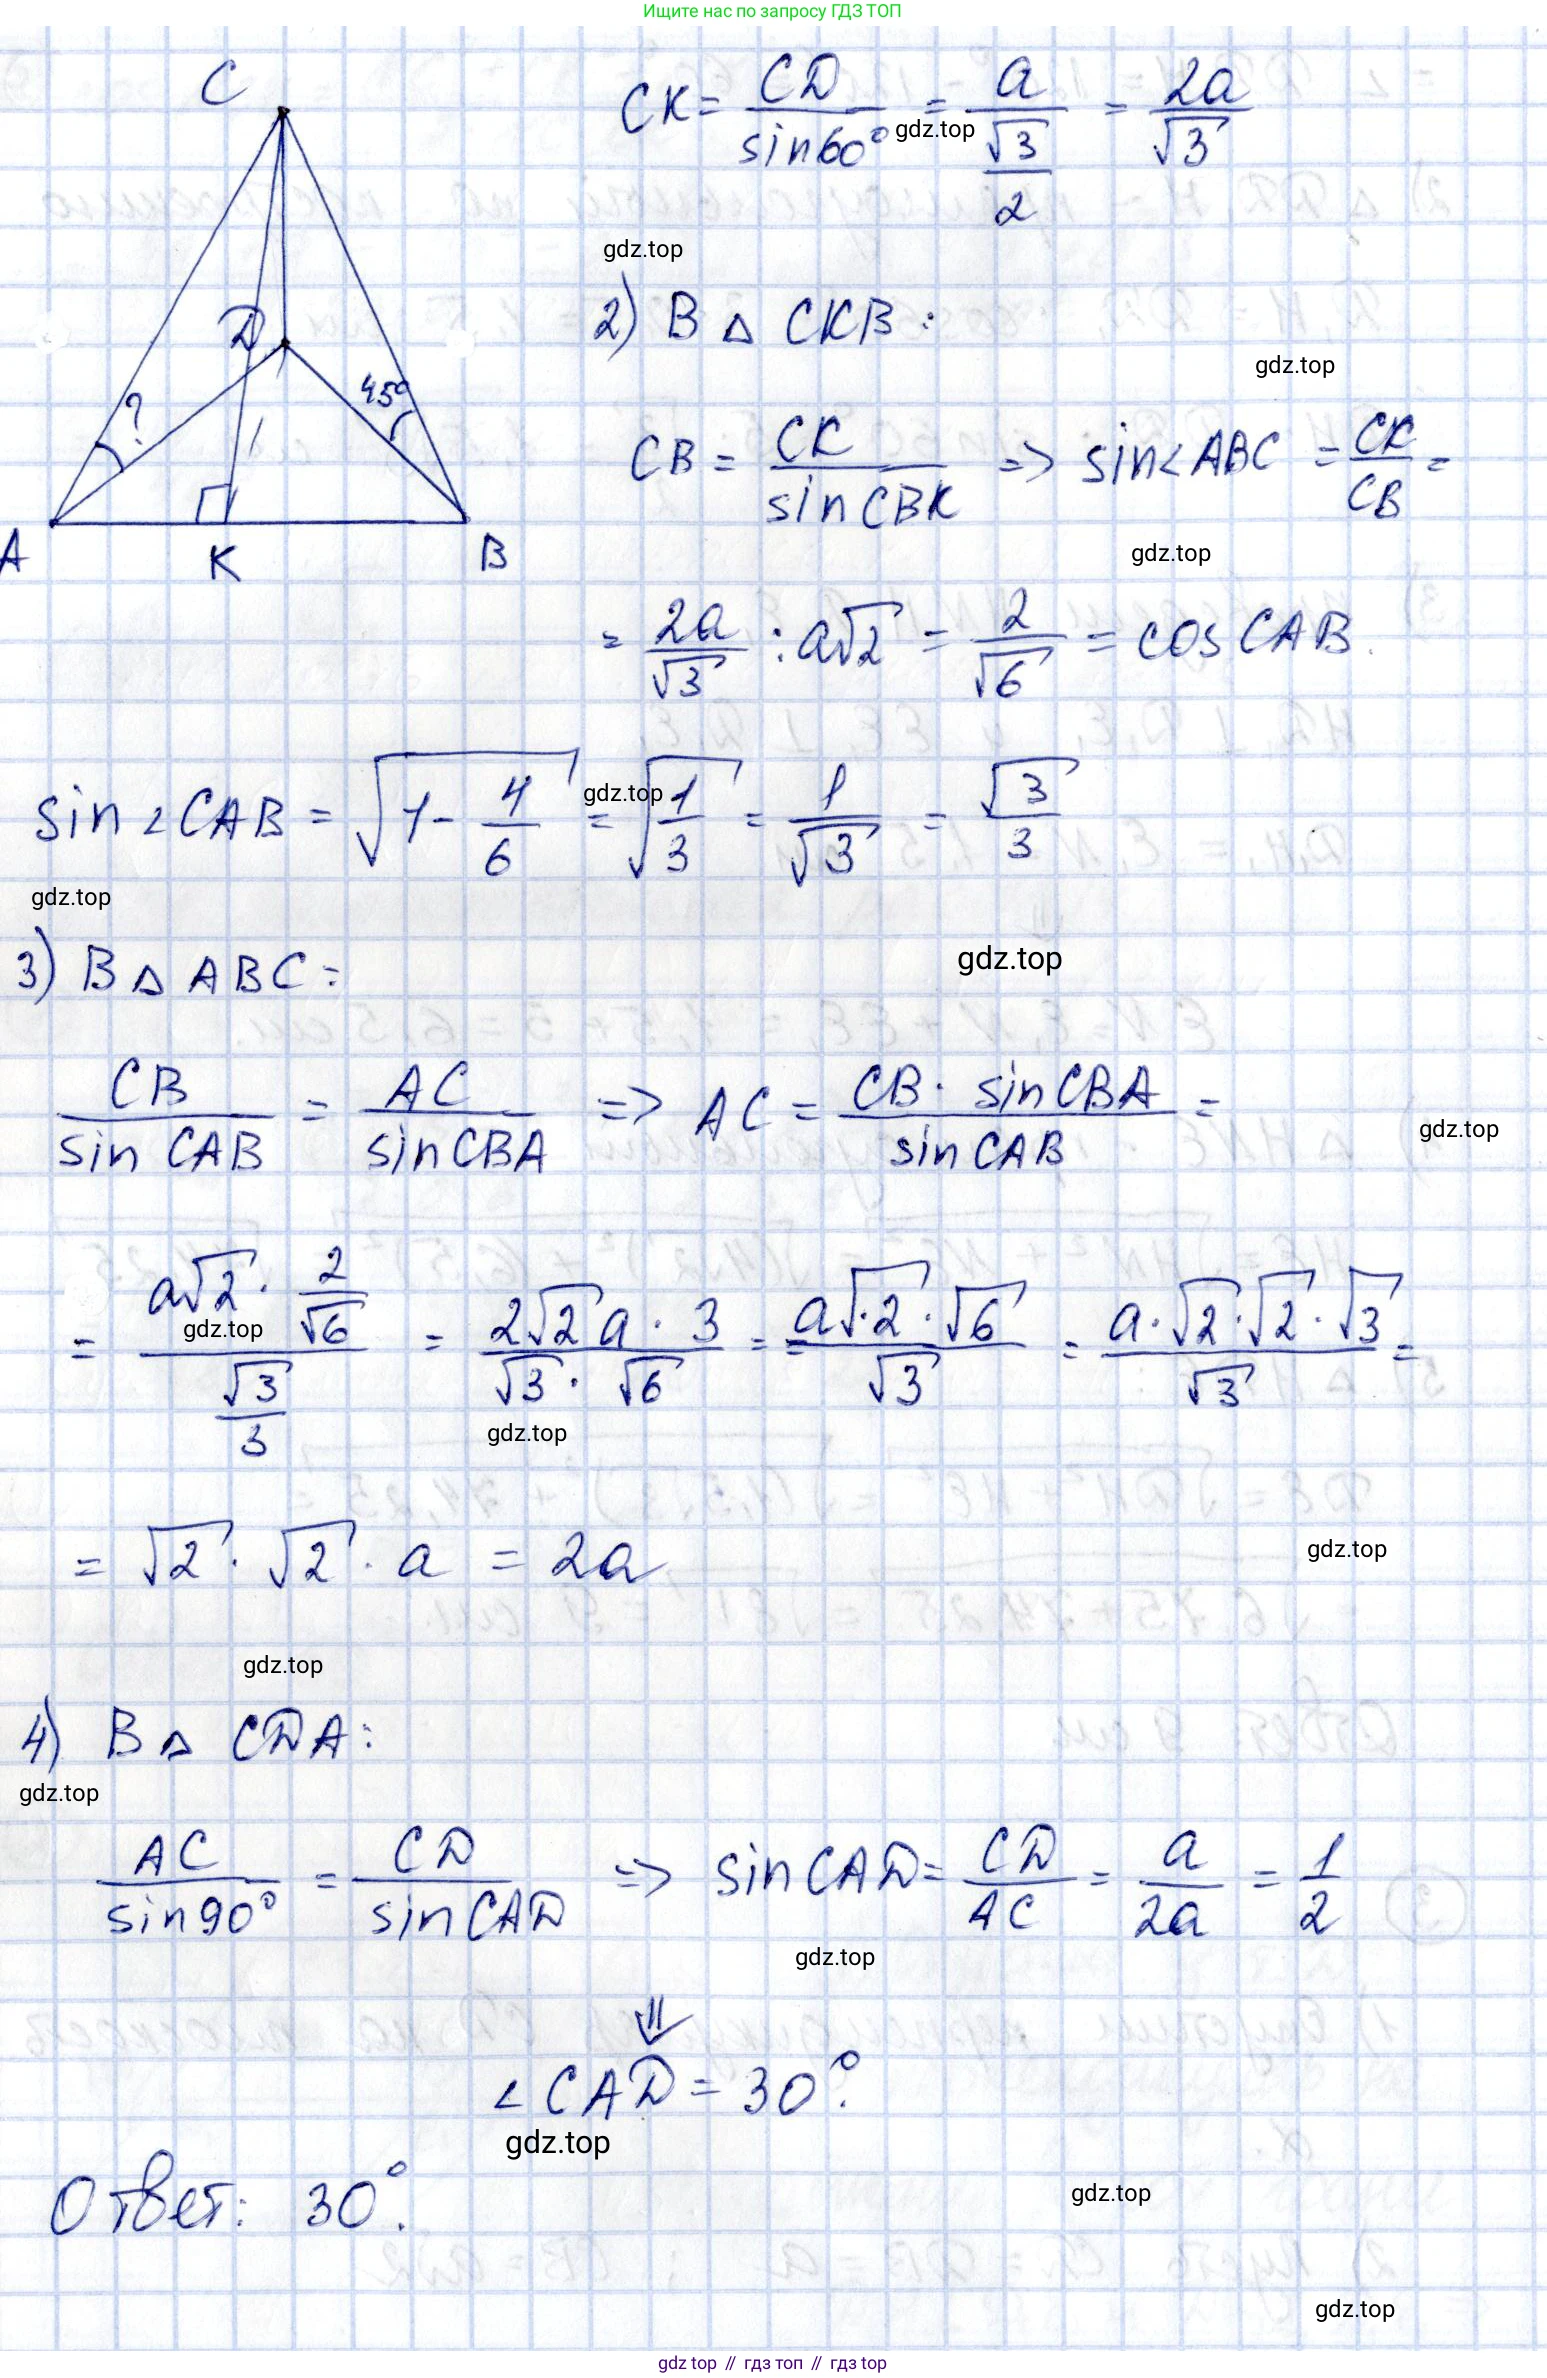 Ищите нас по запросу ГДЗ ТОП
C
D
45°
?
A
K
B
CK = CD / sin60° = a / (√3/2) = 2a/√3
gdz.top
gdz.top
2) В △ CKB:
gdz.top
CB = CK / sin CBK => sin∠ABC = CK/CB =
gdz.top
= 2a/√3 : a√2 = 2/√6 = cos CAB.
sin∠CAB = √(1 - 4/6) = √(1/3) = 1/√3 = √3/3
gdz.top
gdz.top
3) В △ ABC:
gdz.top
CB / sin CAB = AC / sin CBA => AC = CB · sin CBA / sin CAB =
gdz.top
= (a√2 · 2/√6) / (√3/3) = 2√2 a · 3 / (√3 · √6) = a√2 · √6 / √3 = a · √2 · √2 · √3 / √3 =
gdz.top
gdz.top
= √2 · √2 · a = 2a
gdz.top
gdz.top
4) В △ CDA:
gdz.top
AC / sin90° = CD / sin CAD => sin CAD = CD/AC = a/2a = 1/2
gdz.top
⇓
∠CAD = 30°.
gdz.top
Ответ: 30°.
gdz.top
gdz.top
gdz top // гдз топ // гдз top